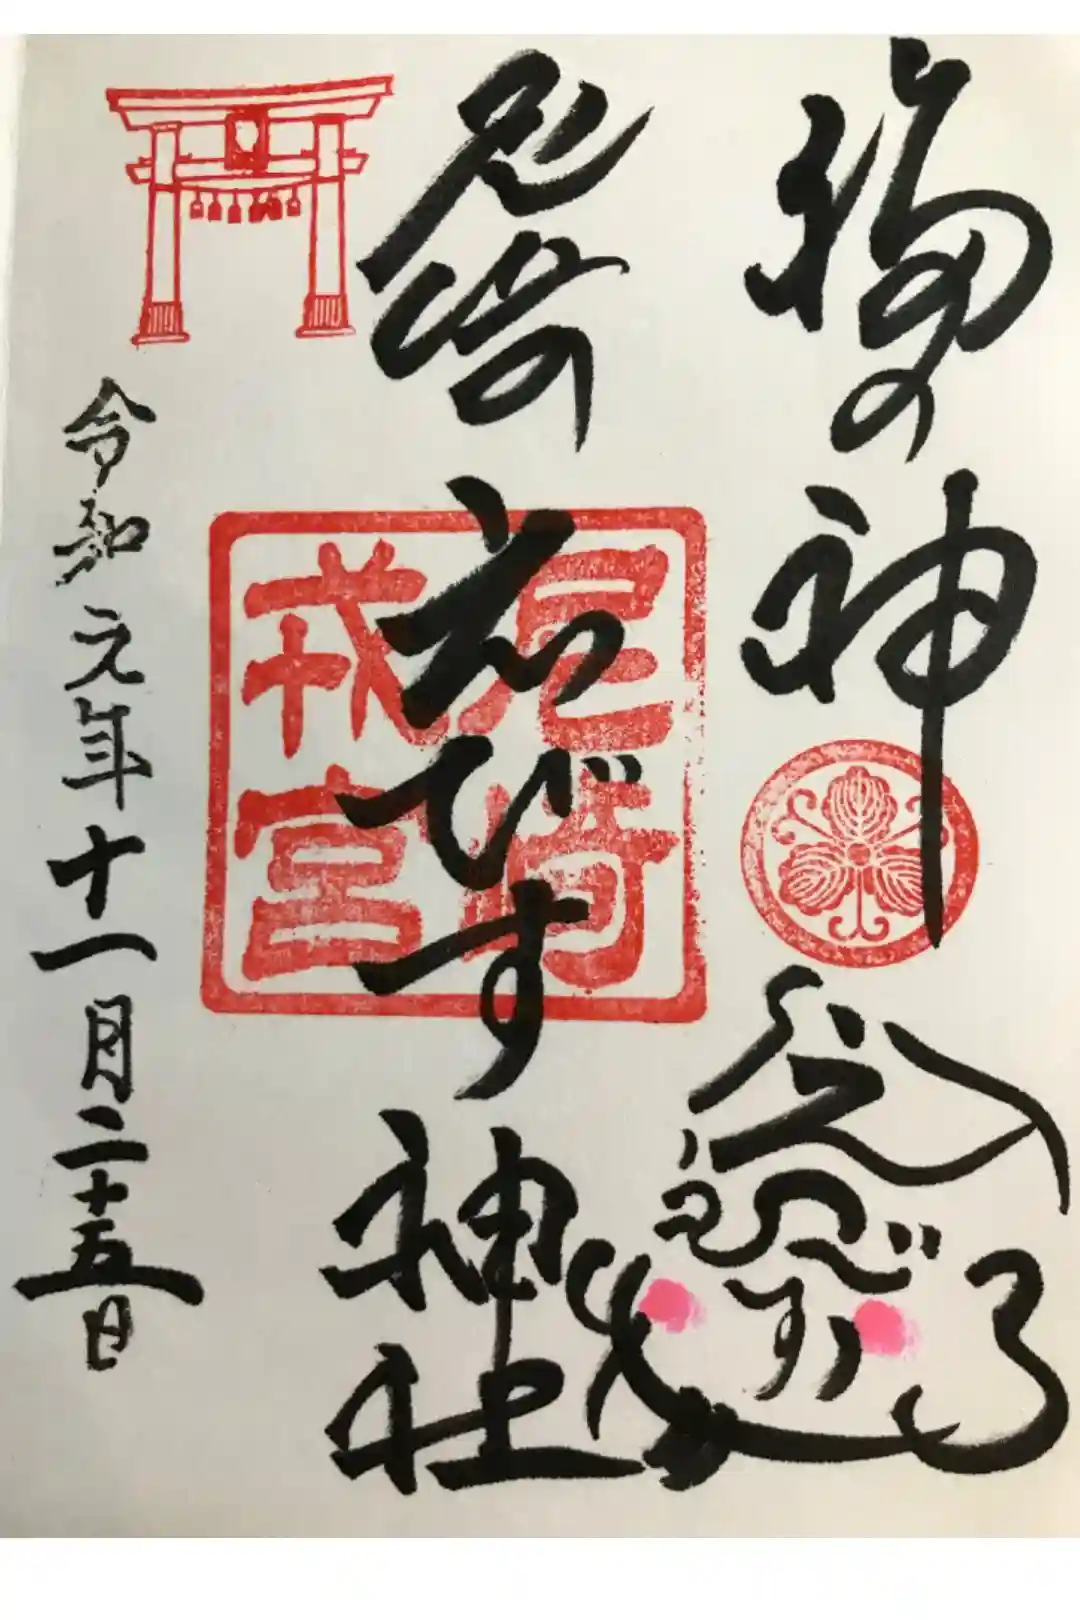 福の神
尼崎えびす神社
尼崎
戎宮
令和元年十一月二十五日